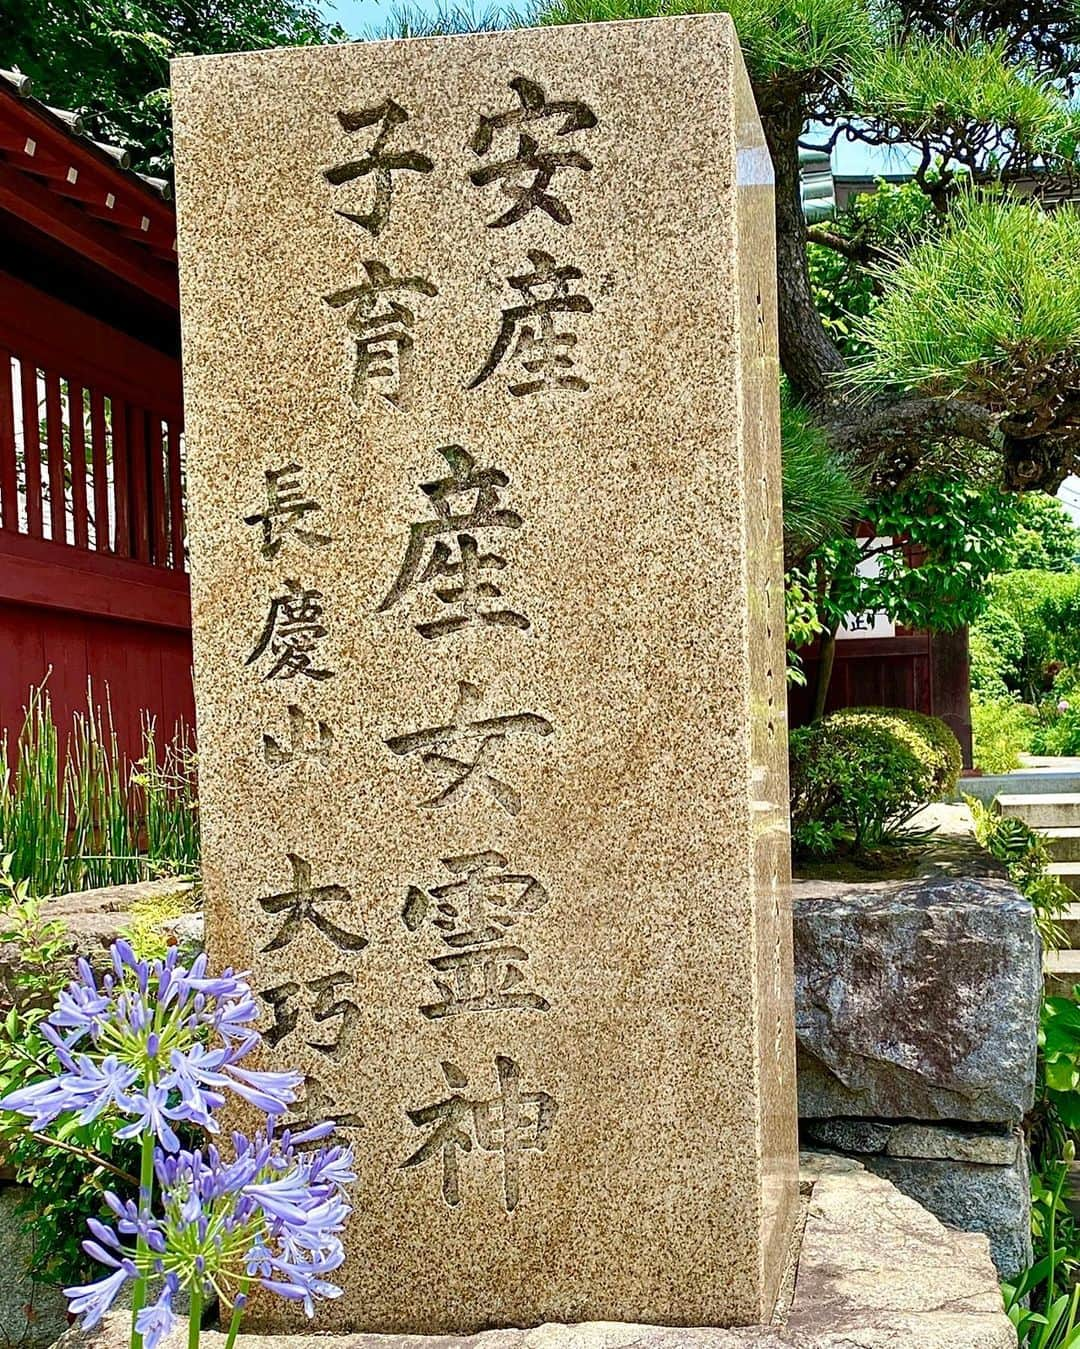 安産
子育
産女霊神
長慶山
大巧寺